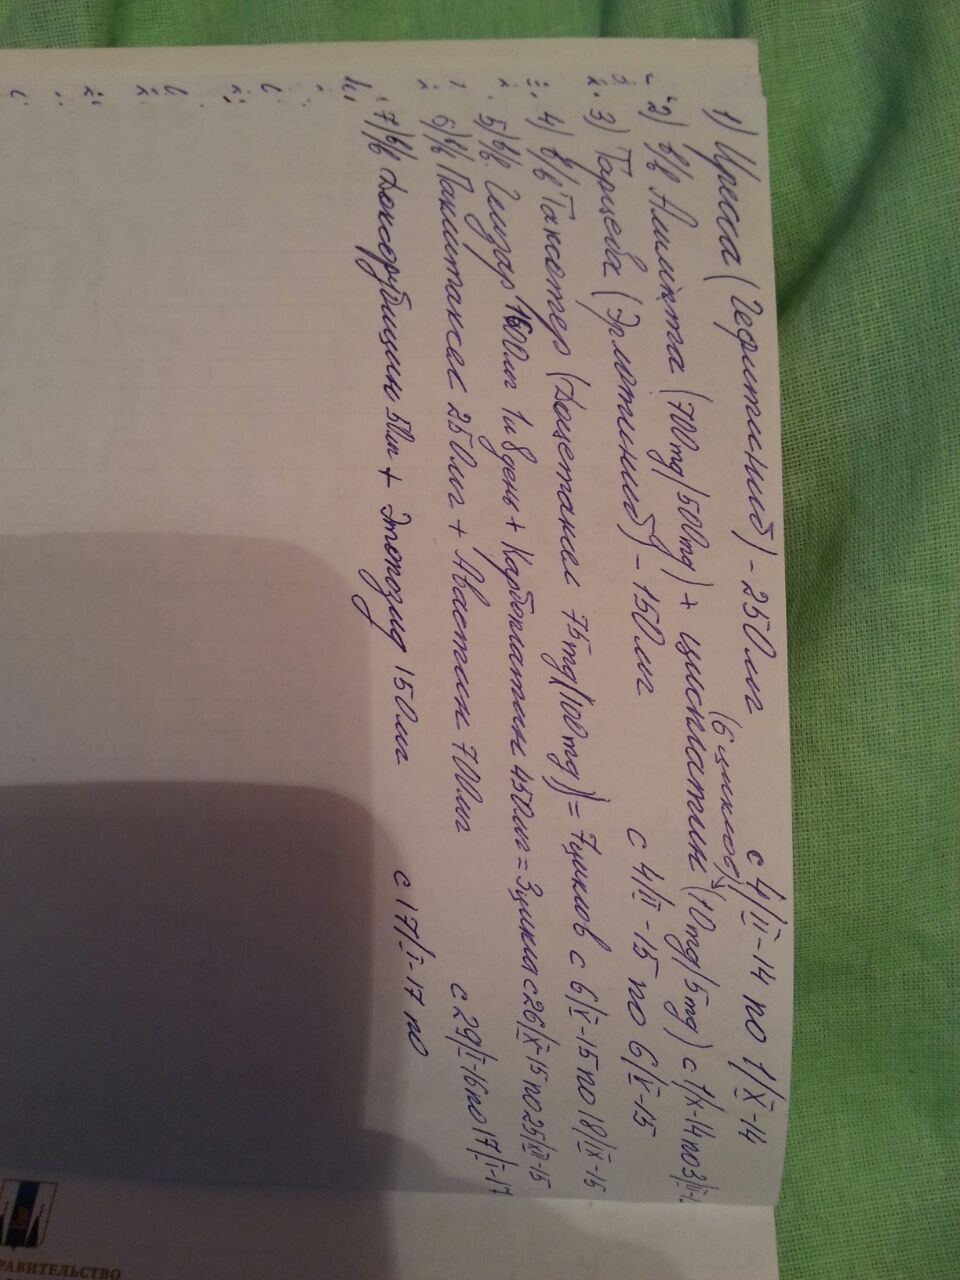 1) Иресса (Гефитиниб) - 250мг с 4/II-14 по 1/X-14
(6 циклов)
2) в/в Алимта (700mg/500mg) + цисплатин (10mg/5mg) с 1/X-14 по 3/II-
3) Тарцева (Эрлотиниб) - 150мг с 4/II-15 по 6/V-15
4) в/в Таксотер (Доцетаксел 75mg/100mg) = 7 циклов с 6/V-15 по 18/IX-15
5) в/в Гемзар 1600мг 1и8день + Карбоплатин 450мг = 3цикла с 26/X-15 по 25/XII-15
6) в/в Паклитаксел 250мг + Авастин 700мг с 29/I-16 по 17/I-17
7) в/в Доксорубицин 50мг + Этопозид 150мг с 17/I-17 по
РАВИТЕЛЬСТВО